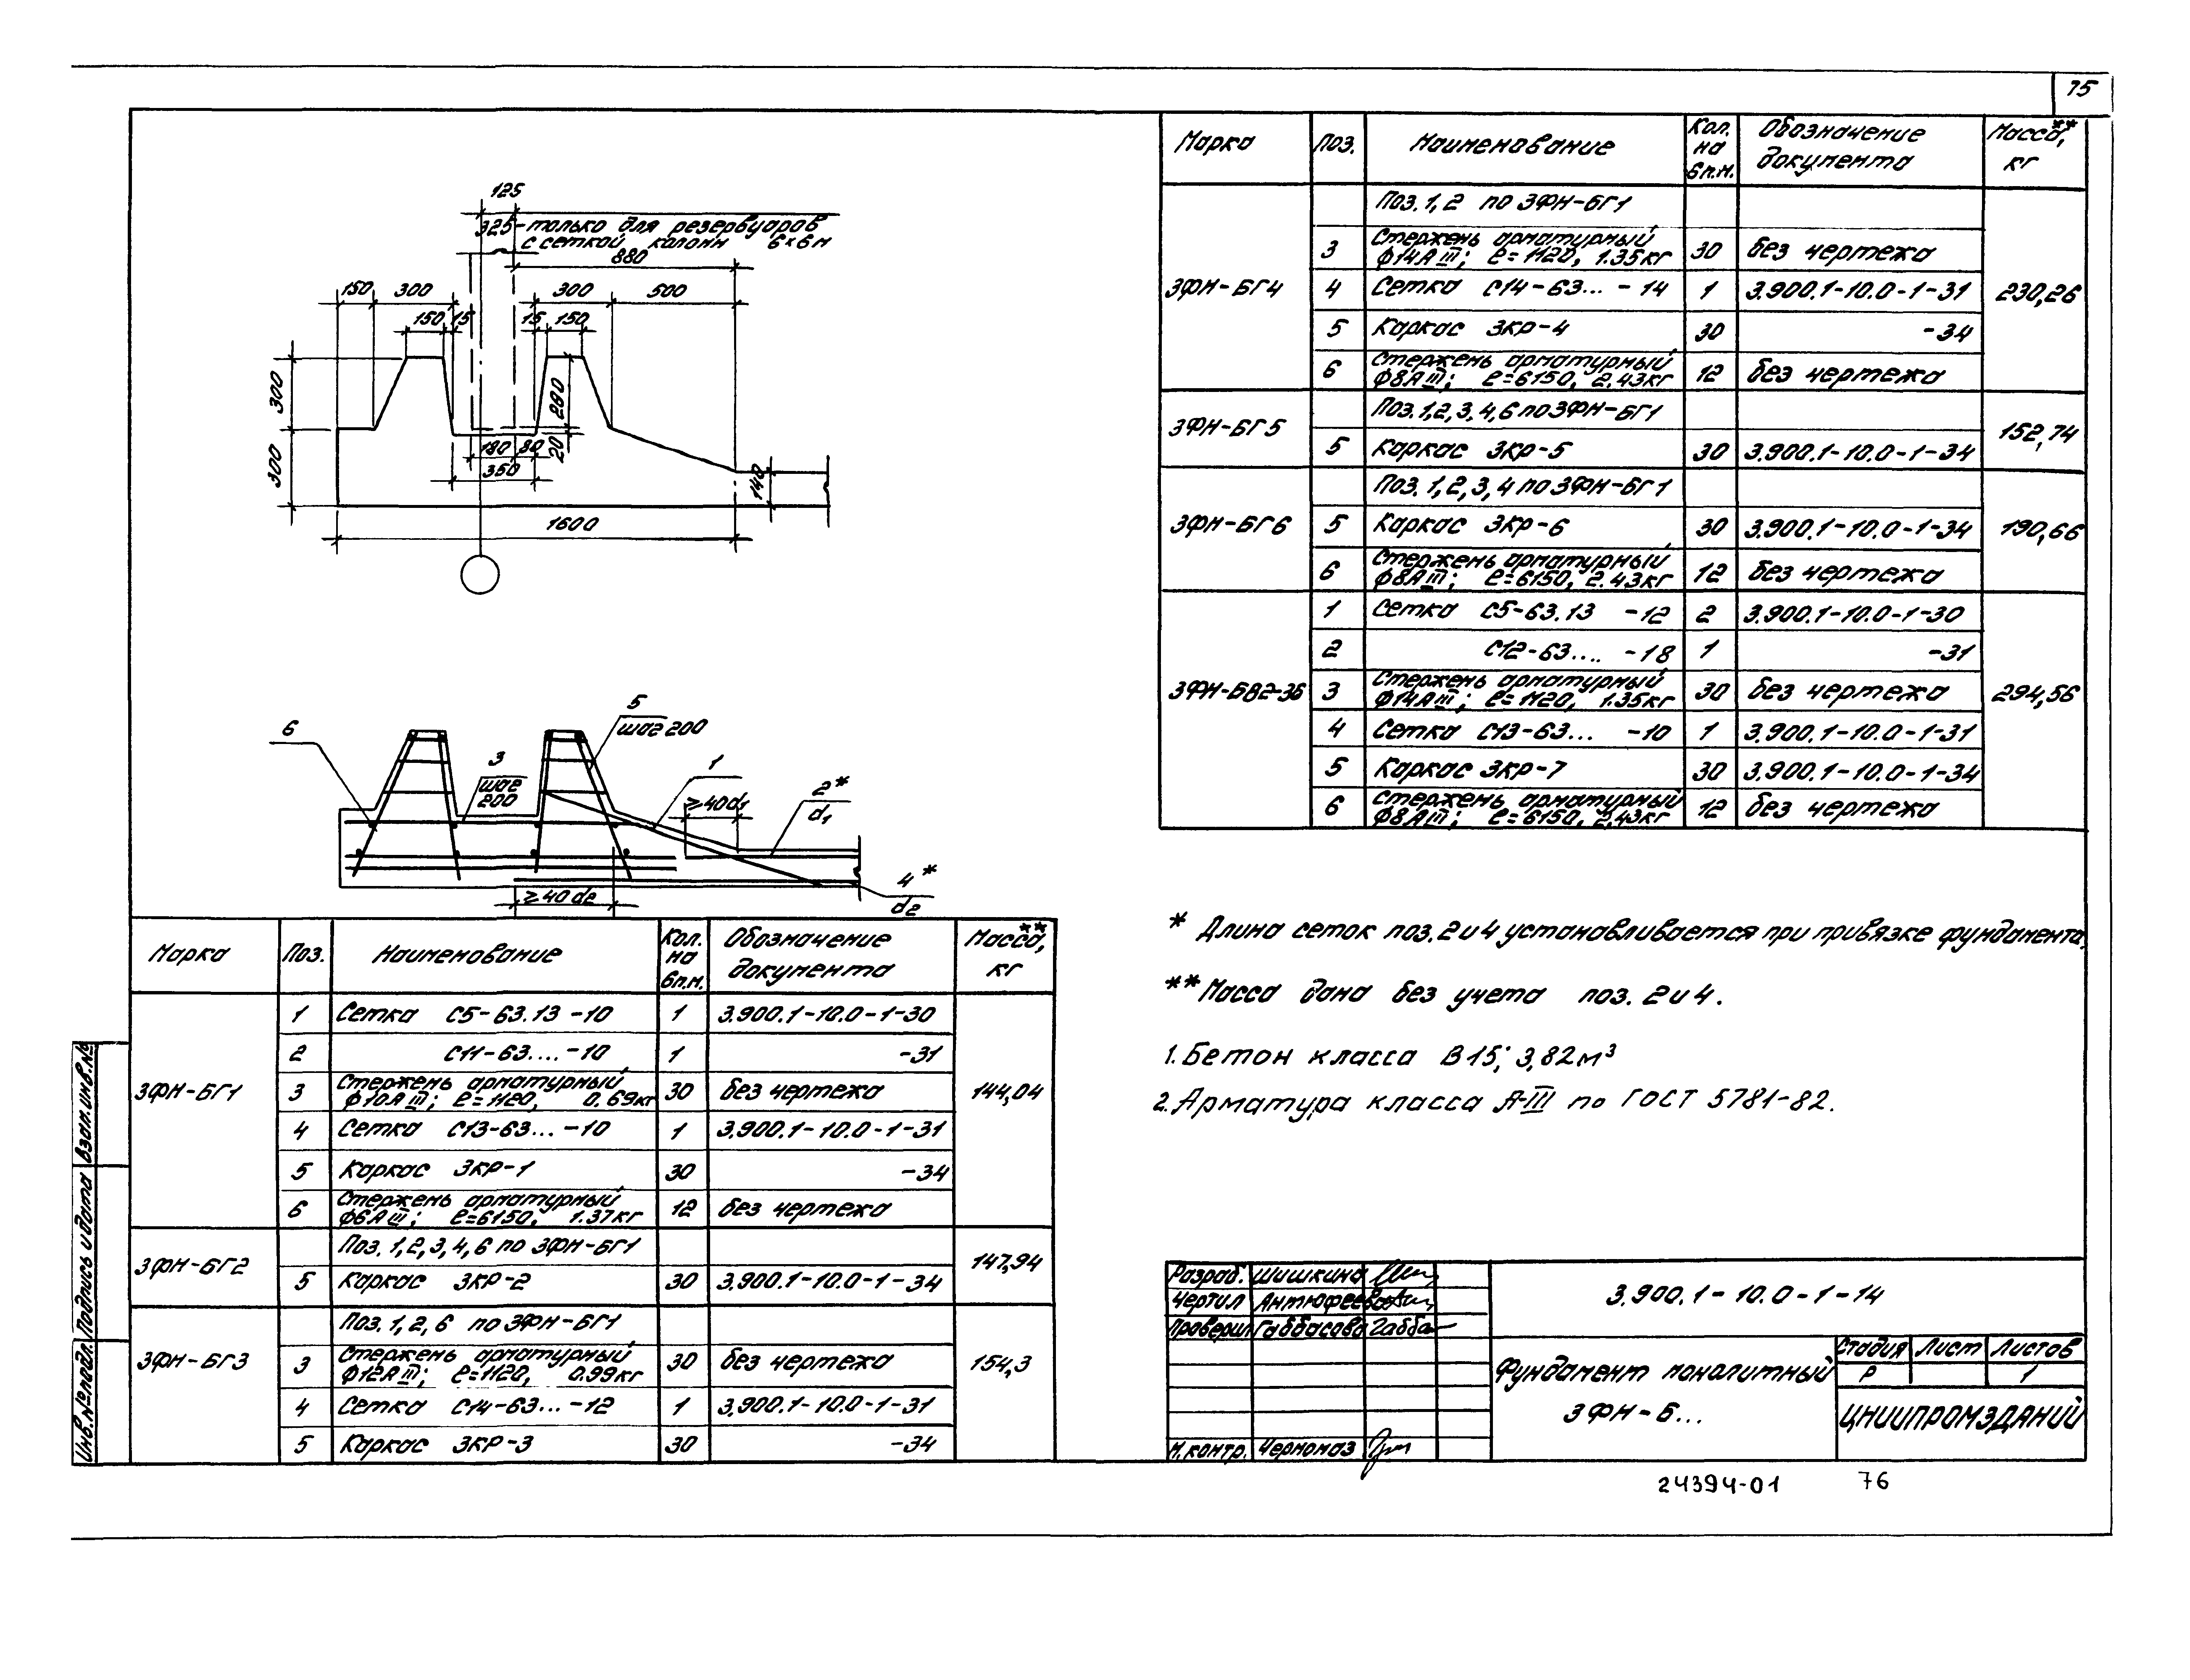 75
125
325-только для резервуаров
с сеткой колонн 6×6м
880
150 300 300 500
150 15 15 150
300 280
300 180 80 20
350 140
1600
6
5
шаг 200
3
шаг
200
1
≥40d1
2*
d1
≥40d2
4*
d2
Марка Поз. Наименование Кол. на 6п.м. Обозначение документа Масса,** кг
3ФН-БГ1 144,04
1 Сетка С5-63.13 -10 1 3.900.1-10.0-1-30
2 С11-63.... -10 1 -31
3 Стержень арматурный
ф10АIII; ℓ=1120, 0.69кг 30 без чертежа
4 Сетка С13-63... -10 1 3.900.1-10.0-1-31
5 Каркас 3КР-1 30 -34
6 Стержень арматурный
ф6АIII; ℓ=6150, 1.37кг 12 без чертежа
3ФН-БГ2 147,94
Поз. 1,2,3,4,6 по 3ФН-БГ1
5 Каркас 3КР-2 30 3.900.1-10.0-1-34
3ФН-БГ3 154,3
Поз. 1,2,6 по 3ФН-БГ1
3 Стержень арматурный
ф12АIII; ℓ=1120, 0.99кг 30 без чертежа
4 Сетка С14-63... -12 1 3.900.1-10.0-1-31
5 Каркас 3КР-3 30 -34
Марка Поз. Наименование Кол. на 6п.м. Обозначение документа Масса,** кг
3ФН-БГ4 230,26
Поз. 1,2 по 3ФН-БГ1
3 Стержень арматурный
ф14АIII; ℓ=1120, 1.35кг 30 без чертежа
4 Сетка С14-63... -14 1 3.900.1-10.0-1-31
5 Каркас 3КР-4 30 -34
6 Стержень арматурный
ф8АIII; ℓ=6150, 2.43кг 12 без чертежа
3ФН-БГ5 152,74
Поз. 1,2,3,4,6 по 3ФН-БГ1
5 Каркас 3КР-5 30 3.900.1-10.0-1-34
3ФН-БГ6 190,66
Поз. 1,2,3,4 по 3ФН-БГ1
5 Каркас 3КР-6 30 3.900.1-10.0-1-34
6 Стержень арматурный
ф8АIII; ℓ=6150, 2.43кг 12 без чертежа
3ФН-Б82-36 294,56
1 Сетка С5-63.13 -12 2 3.900.1-10.0-1-30
2 С12-63.... -18 1 -31
3 Стержень арматурный
ф14АIII; ℓ=1120, 1.35кг 30 без чертежа
4 Сетка С13-63... -10 1 3.900.1-10.0-1-31
5 Каркас 3КР-7 30 3.900.1-10.0-1-34
6 Стержень арматурный
ф8АIII; ℓ=6150, 2.43кг 12 без чертежа
* Длина сеток поз. 2 и 4 устанавливается при привязке фундамента.
** Масса дана без учета поз. 2 и 4.
1. Бетон класса В15; 3,82м³
2. Арматура класса А-III по ГОСТ 5781-82.
Разраб. Шишкина
Чертил Антюфеева
Проверил Габбасова
Н.контр. Черномаз
3.900.1-10.0-1-14
Фундамент монолитный
3ФН-Б...
Стадия Лист Листов
Р 1
ЦНИИПРОМЗДАНИЙ
Инв.№подл. Подпись и дата Взам.инв.№
24394-01 76